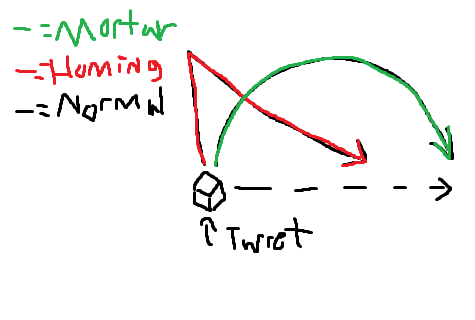 -=Mortar
-=Homing
-=Normal
↑ Turret